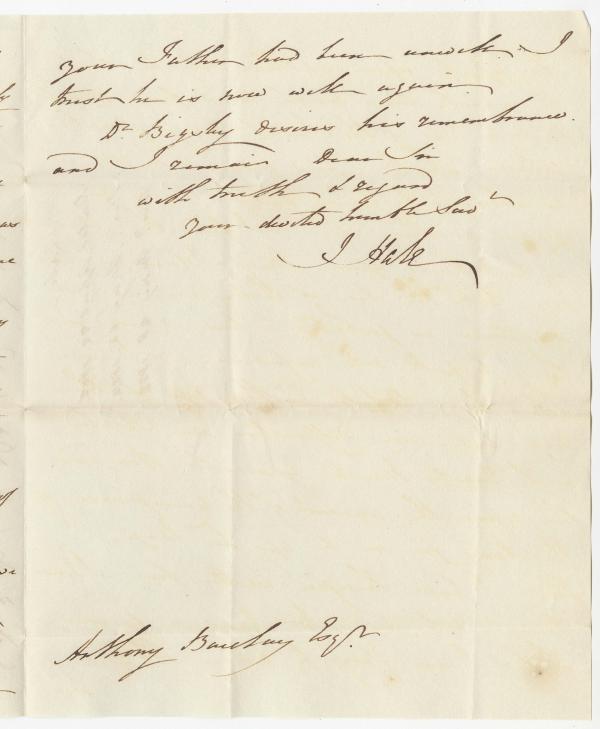 your Father had been unwell. I
trust he is now well again.
Dr Bigsby desires his remembrance.
and I remain Dear Sir
with truth & regard
your devoted humble Servt
J Hale
Anthony Barclay Esqr.